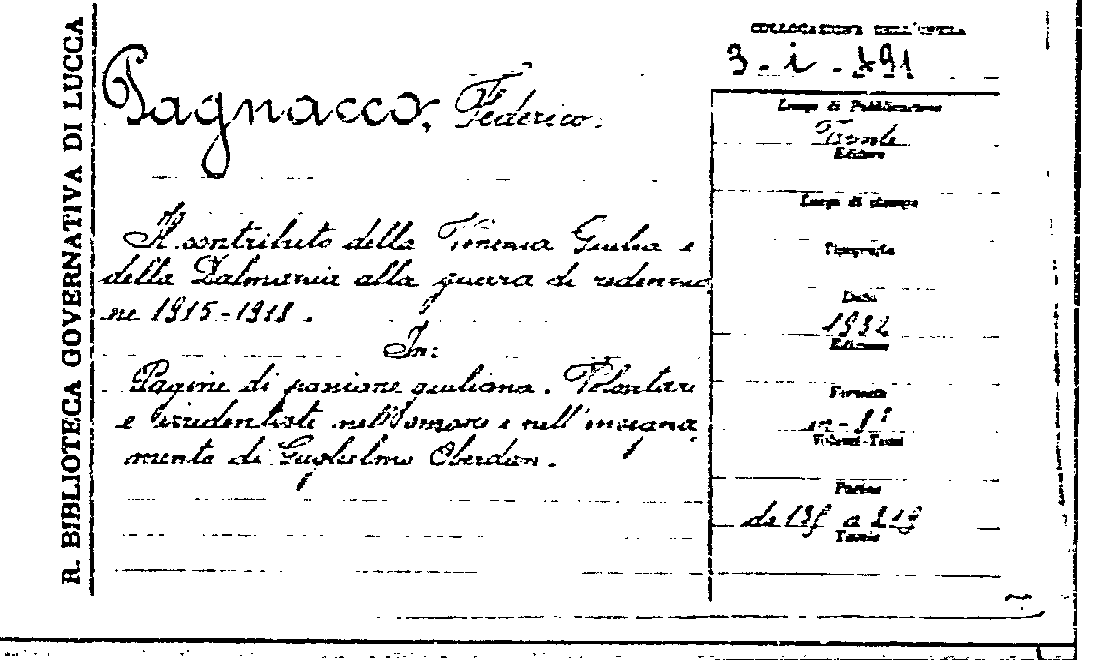 R. BIBLIOTECA GOVERNATIVA DI LUCCA
Pagnacco, Federico.
Il contributo della Venezia Giulia e
della Dalmazia alla guerra di redenzio
ne 1915-1918.
In:
Pagine di passione giuliana. Volontari
e irredentisti nell'amore e nell'insegna
mento di Guglielmo Oberdan.
COLLOCAZIONE DELL'OPERA
3 - i - 491
Luogo di Pubblicazione
Trieste
Editore
Luogo di stampa
Tipografia
Data
1932
Edizione
Formato
in-8°
Volumi-Tomi
Pagine
da a 219
Tavole